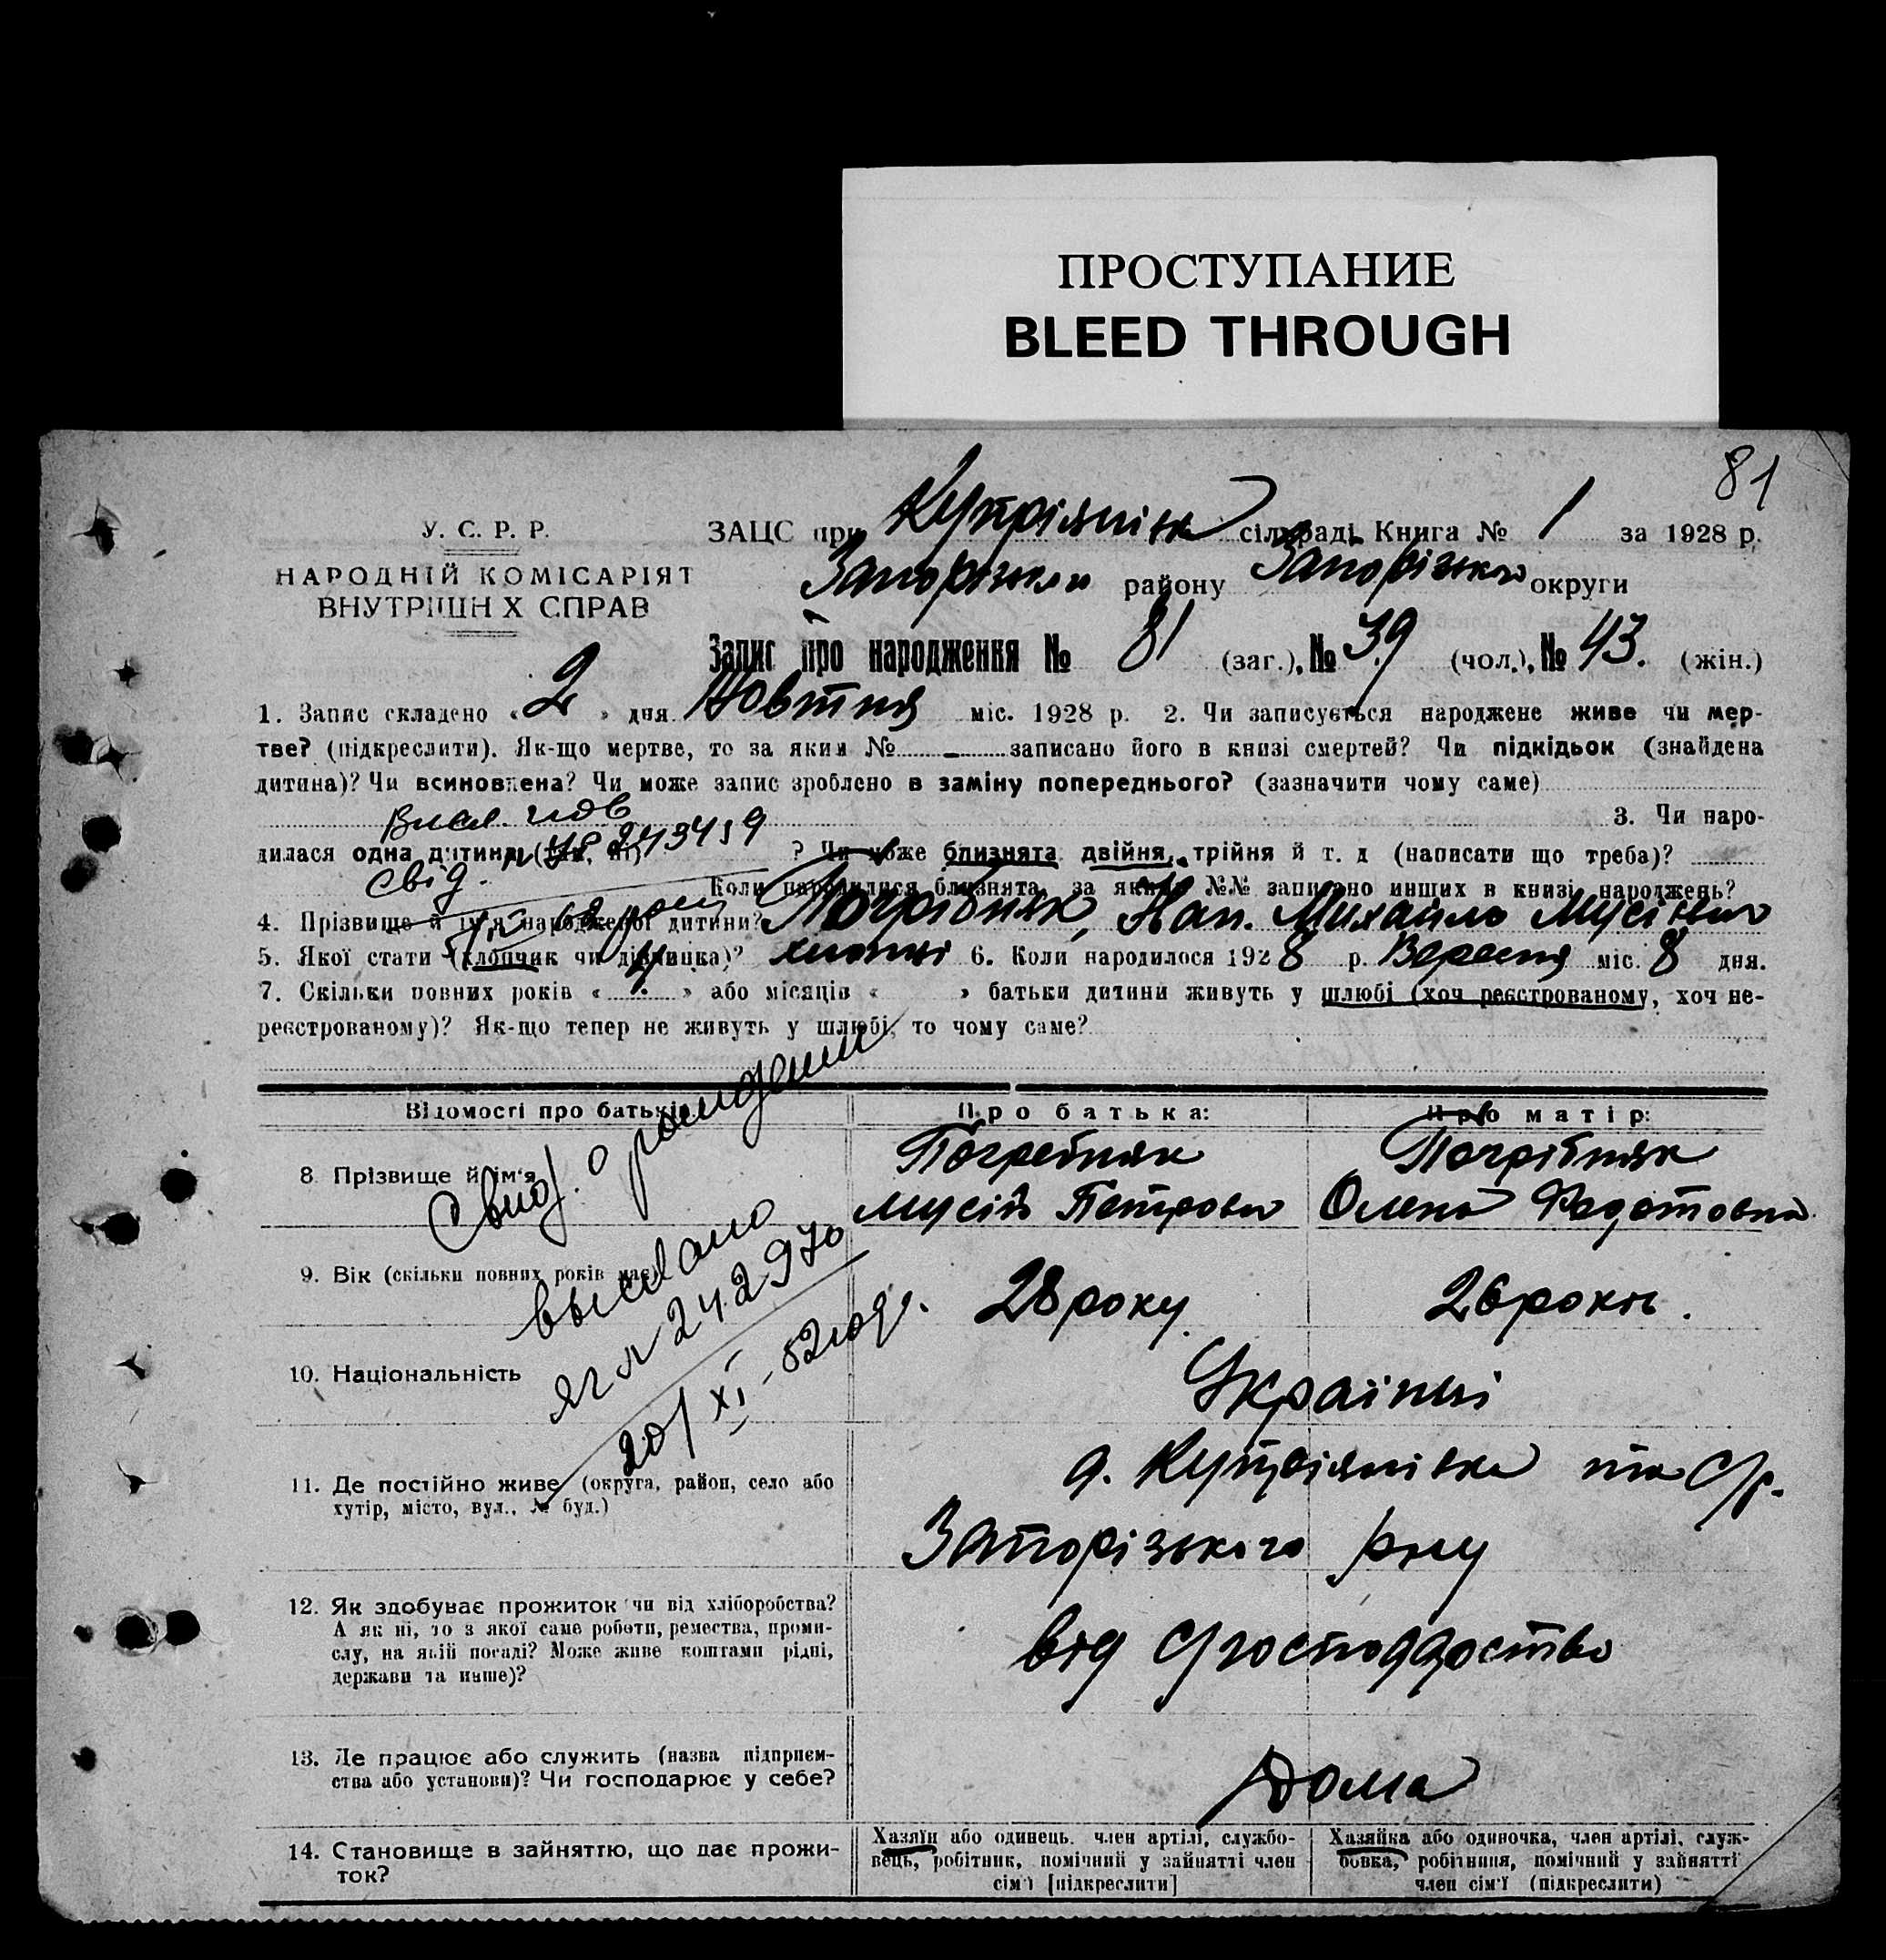 ПРОСТУПАНИЕ
BLEED THROUGH
81
У. С. Р. Р.
НАРОДНІЙ КОМІСАРІЯТ
ВНУТРІШН Х СПРАВ
ЗАЦС при Купріянівк сільраді Книга № 1 за 1928 р.
Запорізького району Запорізької округи
Запис про народження № 81 (заг.), № 39 (чол.), № 43. (жін.)
1. Запис складено « 2 » дня Жовтня міс. 1928 р. 2. Чи записується народжене живе чи мер-
тве? (підкреслити). Як-що мертве, то за яким № - записано його в книзі смертей? Чи підкідьок (знайдена
дитина)? Чи всиновлена? Чи може запис зроблено в заміну попереднього? (зазначити чому саме)
3. Чи наро-
дилася одна дитина (так, ні) ? Чи може близнята двійня, трійня й т. д (написати що треба)?
Коли народилися близнята, за якими №№ записано инших в книзі народжень?
4. Прізвище й ім'я народженої дитини? Погрібняк, Михайло Мусієвич
5. Якої стати (хлопчик чи дівчинка)? 6. Коли народилося 1928 р. Вересня міс. 8 дня.
7. Скільки повних років « » або місяців « » батьки дитини живуть у шлюбі (хоч реєстрованому, хоч не-
реєстрованому)? Як-що тепер не живуть у шлюбі, то чому саме?
Відомості про батьків
Про батька:
Про матір:
8 Прізвище й ім'я
Погребняк
Мусій Петрович
Погрібняк
Олена Федотовна
Свид. о рождении
выслано
ЯГ № 242970
20/XI-52 года.
9. Вік (скільки повних років має)
28 року
26 років.
10. Національність
Українці
11. Де постійно живе (округа, район, село або
хутір, місто, вул., № буд.)
с. Купріянівка та с/р.
Запорізького р-ну
12. Як здобуває прожиток чи від хліборобства?
А як ні, то з якої саме роботи, ремества, проми-
слу, на якій посаді? Може живе коштами рідні,
держави та инше)?
від с/господарства
13. Де працює або служить (назва підприєм-
ства або установи)? Чи господарює у себе?
Дома
14. Становище в зайняттю, що дає прожи-
ток?
Хазяїн або одинець. член артілі, службо-
вець, робітник, помічний у зайнятті член
сім'ї [підкреслити]
Хазяйка або одиночка, член артілі, служ-
бовка, робітниця, помічний у зайнятті
член сім'ї (підкреслити)